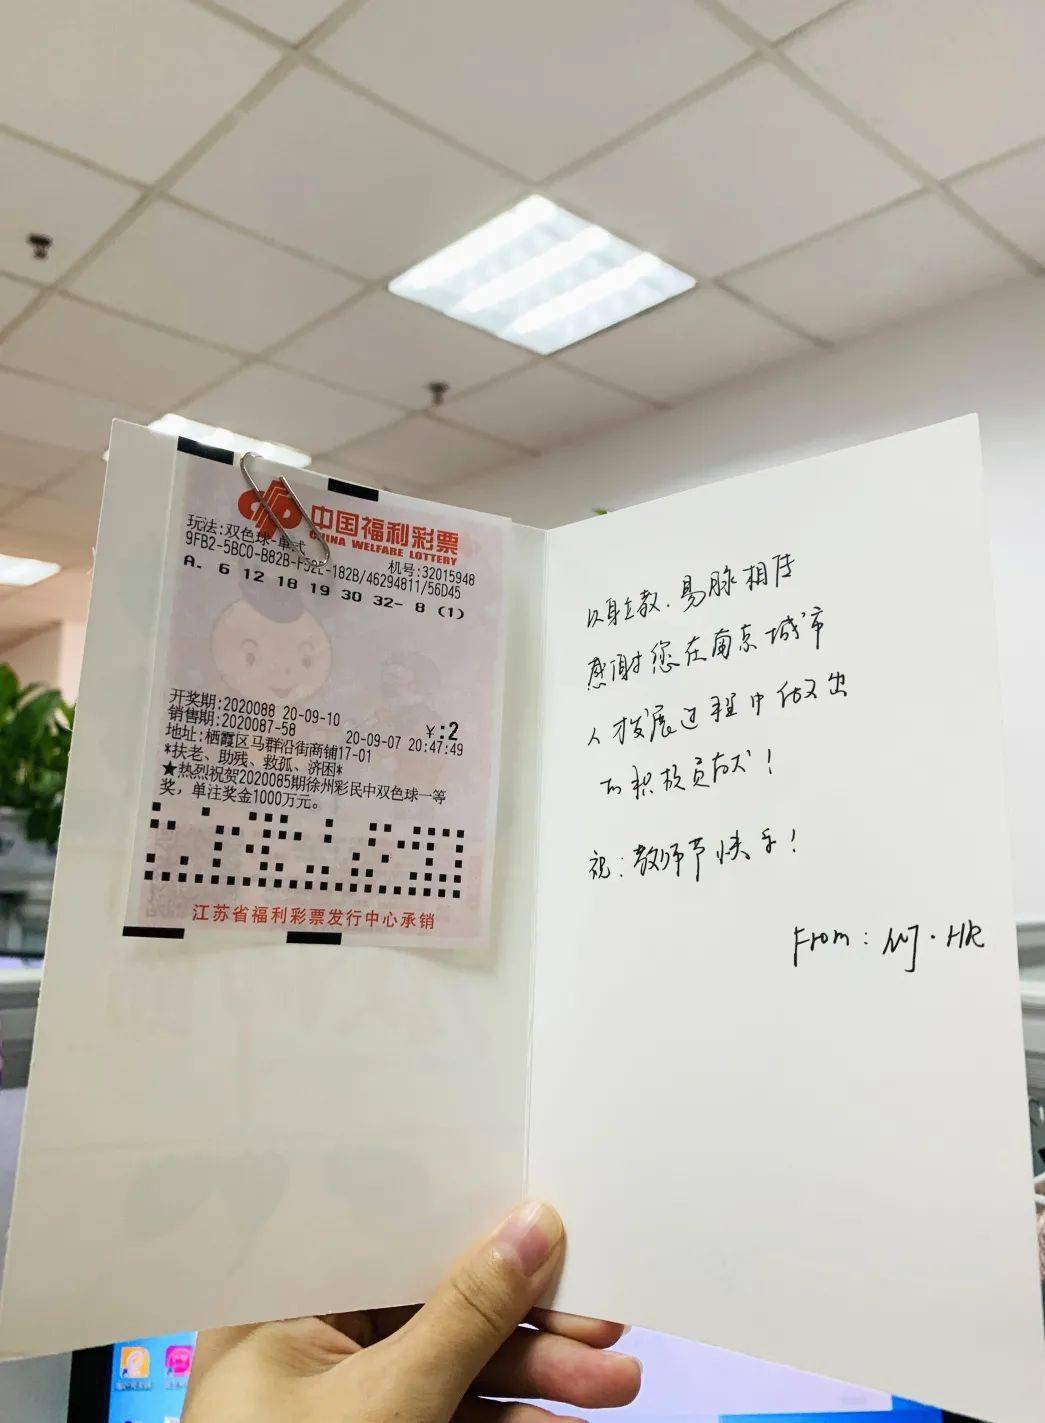 中国福利彩票
CHINA WELFARE LOTTERY
玩法:双色球-单式
机号:32015948
9FB2-5BC0-B82B-F52E-182B/46294811/56D45
A. 6 12 18 19 30 32- 8 (1)
开奖期:2020088 20-09-10 ¥:2
销售期:2020087-58 20-09-07 20:47:49
地址:栖霞区马群沿街商铺17-01
*扶老、助残、救孤、济困*
★热烈祝贺2020085期徐州彩民中双色球一等
奖,单注奖金1000万元。
江苏省福利彩票发行中心承销
以身立教.易脉相传
感谢您在南京城市
人才发展过程中做出
的积极贡献!
祝:教师节快乐!
From: NJ·HR